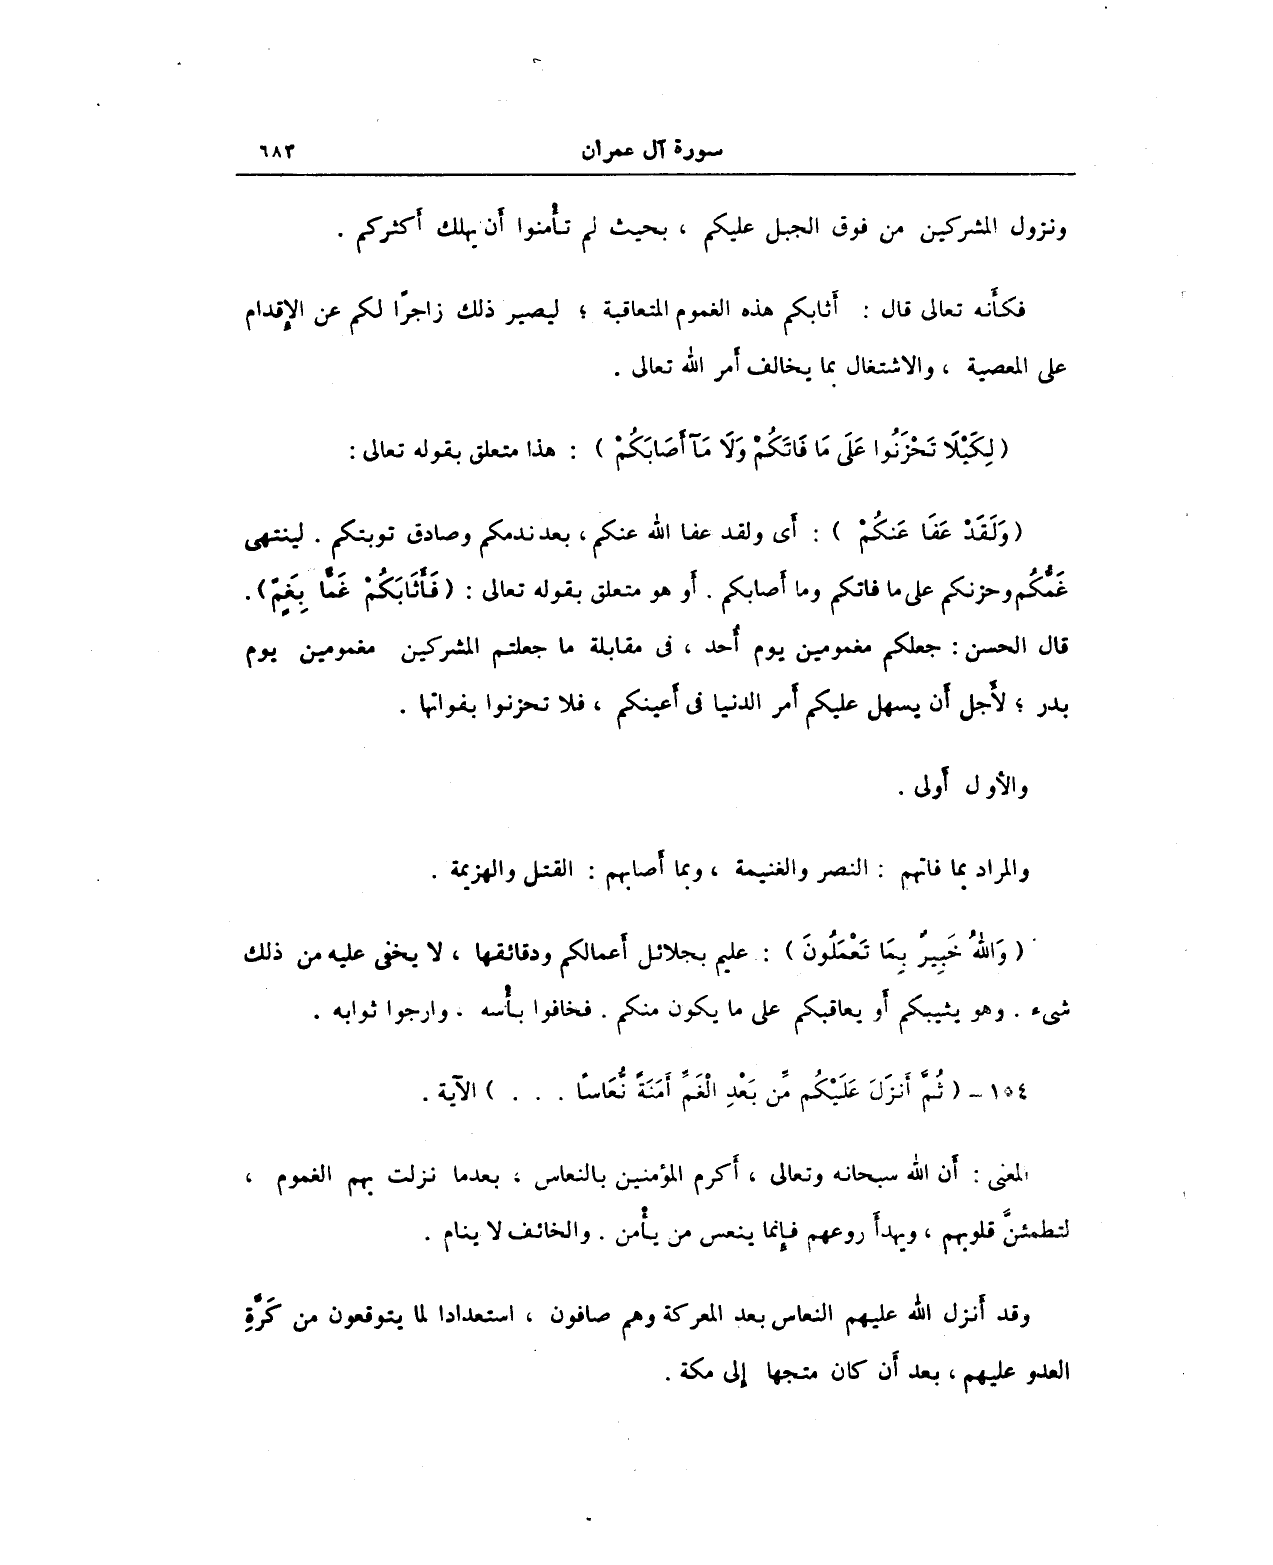 سورة آل عمران ٦٨٣
ونزول المشركين من فوق الجبل عليكم ، بحيث لم تأْمنوا أَن يهلك أَكثركم .
فكأَنه تعالى قال : أَثابكم هذه الغموم المتعاقبة ؛ ليصير ذلك زاجرًا لكم عن الإِقدام
على المعصية ، والاشتغال بما يخالف أَمر الله تعالى .
( لِكَيْلَا تَحْزَنُوا عَلَى مَا فَاتَكُمْ وَلَا مَآ أَصَابَكُمْ ) : هذا متعلق بقوله تعالى :
( وَلَقَدْ عَفَا عَنكُمْ ) : أَى ولقد عفا الله عنكم ، بعد ندمكم وصادق توبتكم . لينتهى
غَمُّكُم وحزنكم على ما فاتكم وما أَصابكم . أَو هو متعلق بقوله تعالى : ( فَأَثَابَكُمْ غَمًّا بِغَمٍّ ) .
قال الحسن : جعلكم مغمومين يوم أُحد ، فى مقابلة ما جعلتم المشركين مغمومين يوم
بدر ؛ لأَجل أَن يسهل عليكم أَمر الدنيا فى أَعينكم ، فلا تحزنوا بفواتها .
والأول أَولى .
والمراد بما فاتهم : النصر والغنيمة ، وبما أَصابهم : القتل والهزيمة .
( وَاللهُ خَبِيرٌ بِمَا تَعْمَلُونَ ) : عليم بجلائل أَعمالكم ودقائقها ، لا يخفى عليه من ذلك
شىء . وهو يثيبكم أَو يعاقبكم على ما يكون منكم . فخافوا بأْسه . وارجوا ثوابه .
١٥٤ - ( ثُمَّ أَنزَلَ عَلَيْكُم مِّن بَعْدِ الْغَمِّ أَمَنَةً نُّعَاسًا . . . ) الآية .
المعنى : أَن الله سبحانه وتعالى ، أَكرم المؤمنين بالنعاس ، بعدما نزلت بهم الغموم ،
لتطمئنَّ قلوبهم ، ويهدأَ روعهم فإِنما ينعس من يأْمن . والخائف لا ينام .
وقد أَنزل الله عليهم النعاس بعد المعركة وهم صافون ، استعدادا لما يتوقعون من كَرَّةِ
العدو عليهم ، بعد أَن كان متجها إِلى مكة .